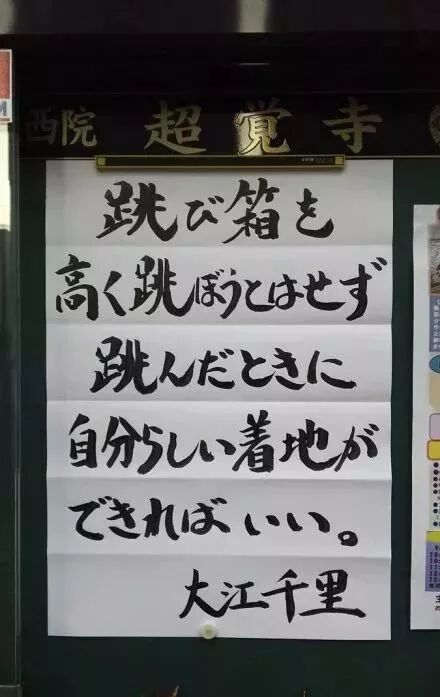 西院 超覚寺
跳び箱を
高く跳ぼうとはせず
跳んだときに
自分らしい着地が
できればいい。
大江千里